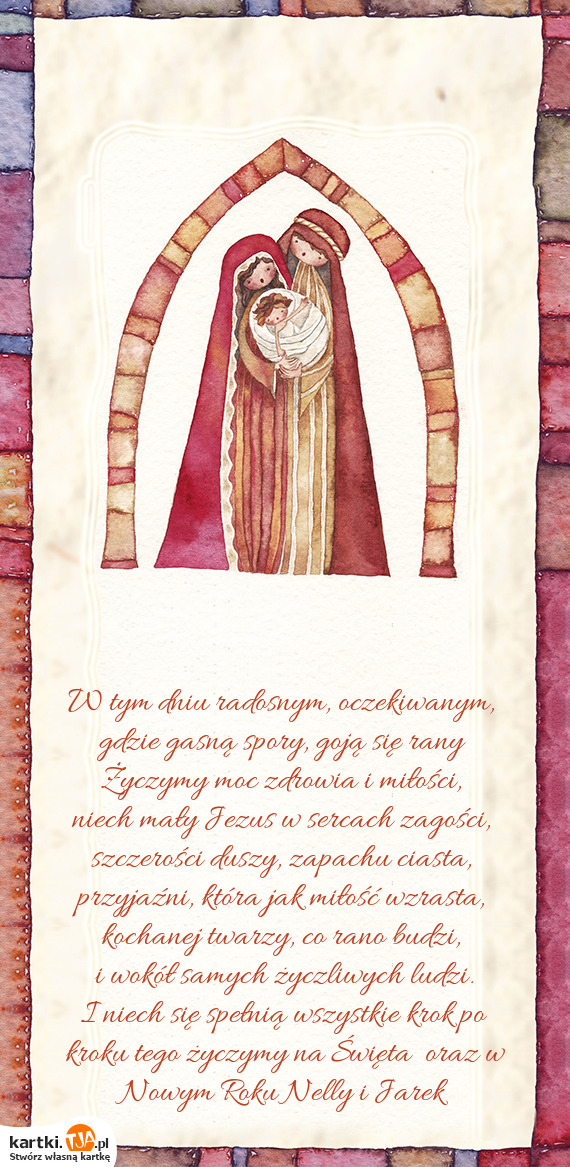 W tym dniu radosnym, oczekiwanym,
gdzie gasną spory, goją się rany
Życzymy moc zdrowia i miłości,
niech mały Jezus w sercach zagości,
szczerości duszy, zapachu ciasta,
przyjaźni, która jak miłość wzrasta,
kochanej twarzy, co rano budzi,
i wokół samych życzliwych ludzi.
I niech się spełnią wszystkie krok po
kroku tego życzymy na Święta oraz w
Nowym Roku Nelly i Jarek
kartki.TJA.pl
Stwórz własną kartkę